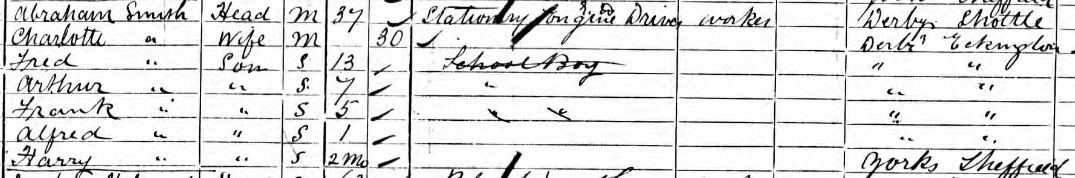 Abraham Smith Head M 37 Stationary Engine Driver worker Derby Shottle
Charlotte " Wife M 30 Derby Eckington
Fred " Son S 13 School Boy " "
Arthur " " S 7 " " "
Frank " " S 5 " " " "
Alfred " " S 1 " "
Harry " " S 2 Mo Yorks Sheffield